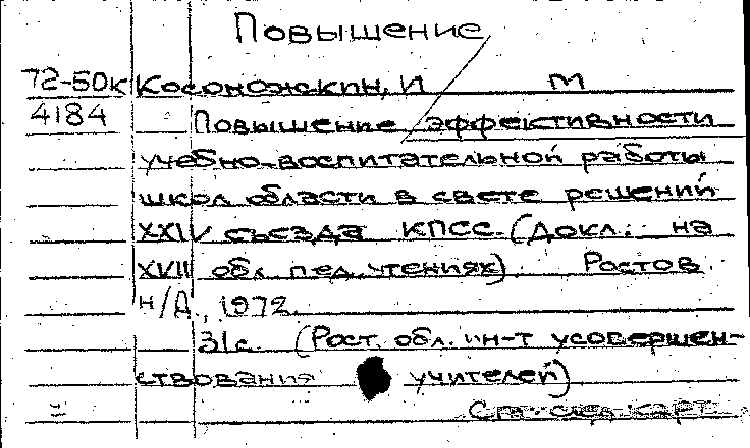 Повышение
72-50к Косоножкин, И М
4184 Повышение эффективности
учебно-воспитательной работы
школ области в свете решений
XXIV съезда КПСС. (Докл. на
XVII обл. пед. чтениях). Ростов
н/Д., 1972.
31с. (Рост. обл. ин-т усовершен-
ствования учителей)
См. след. карт.